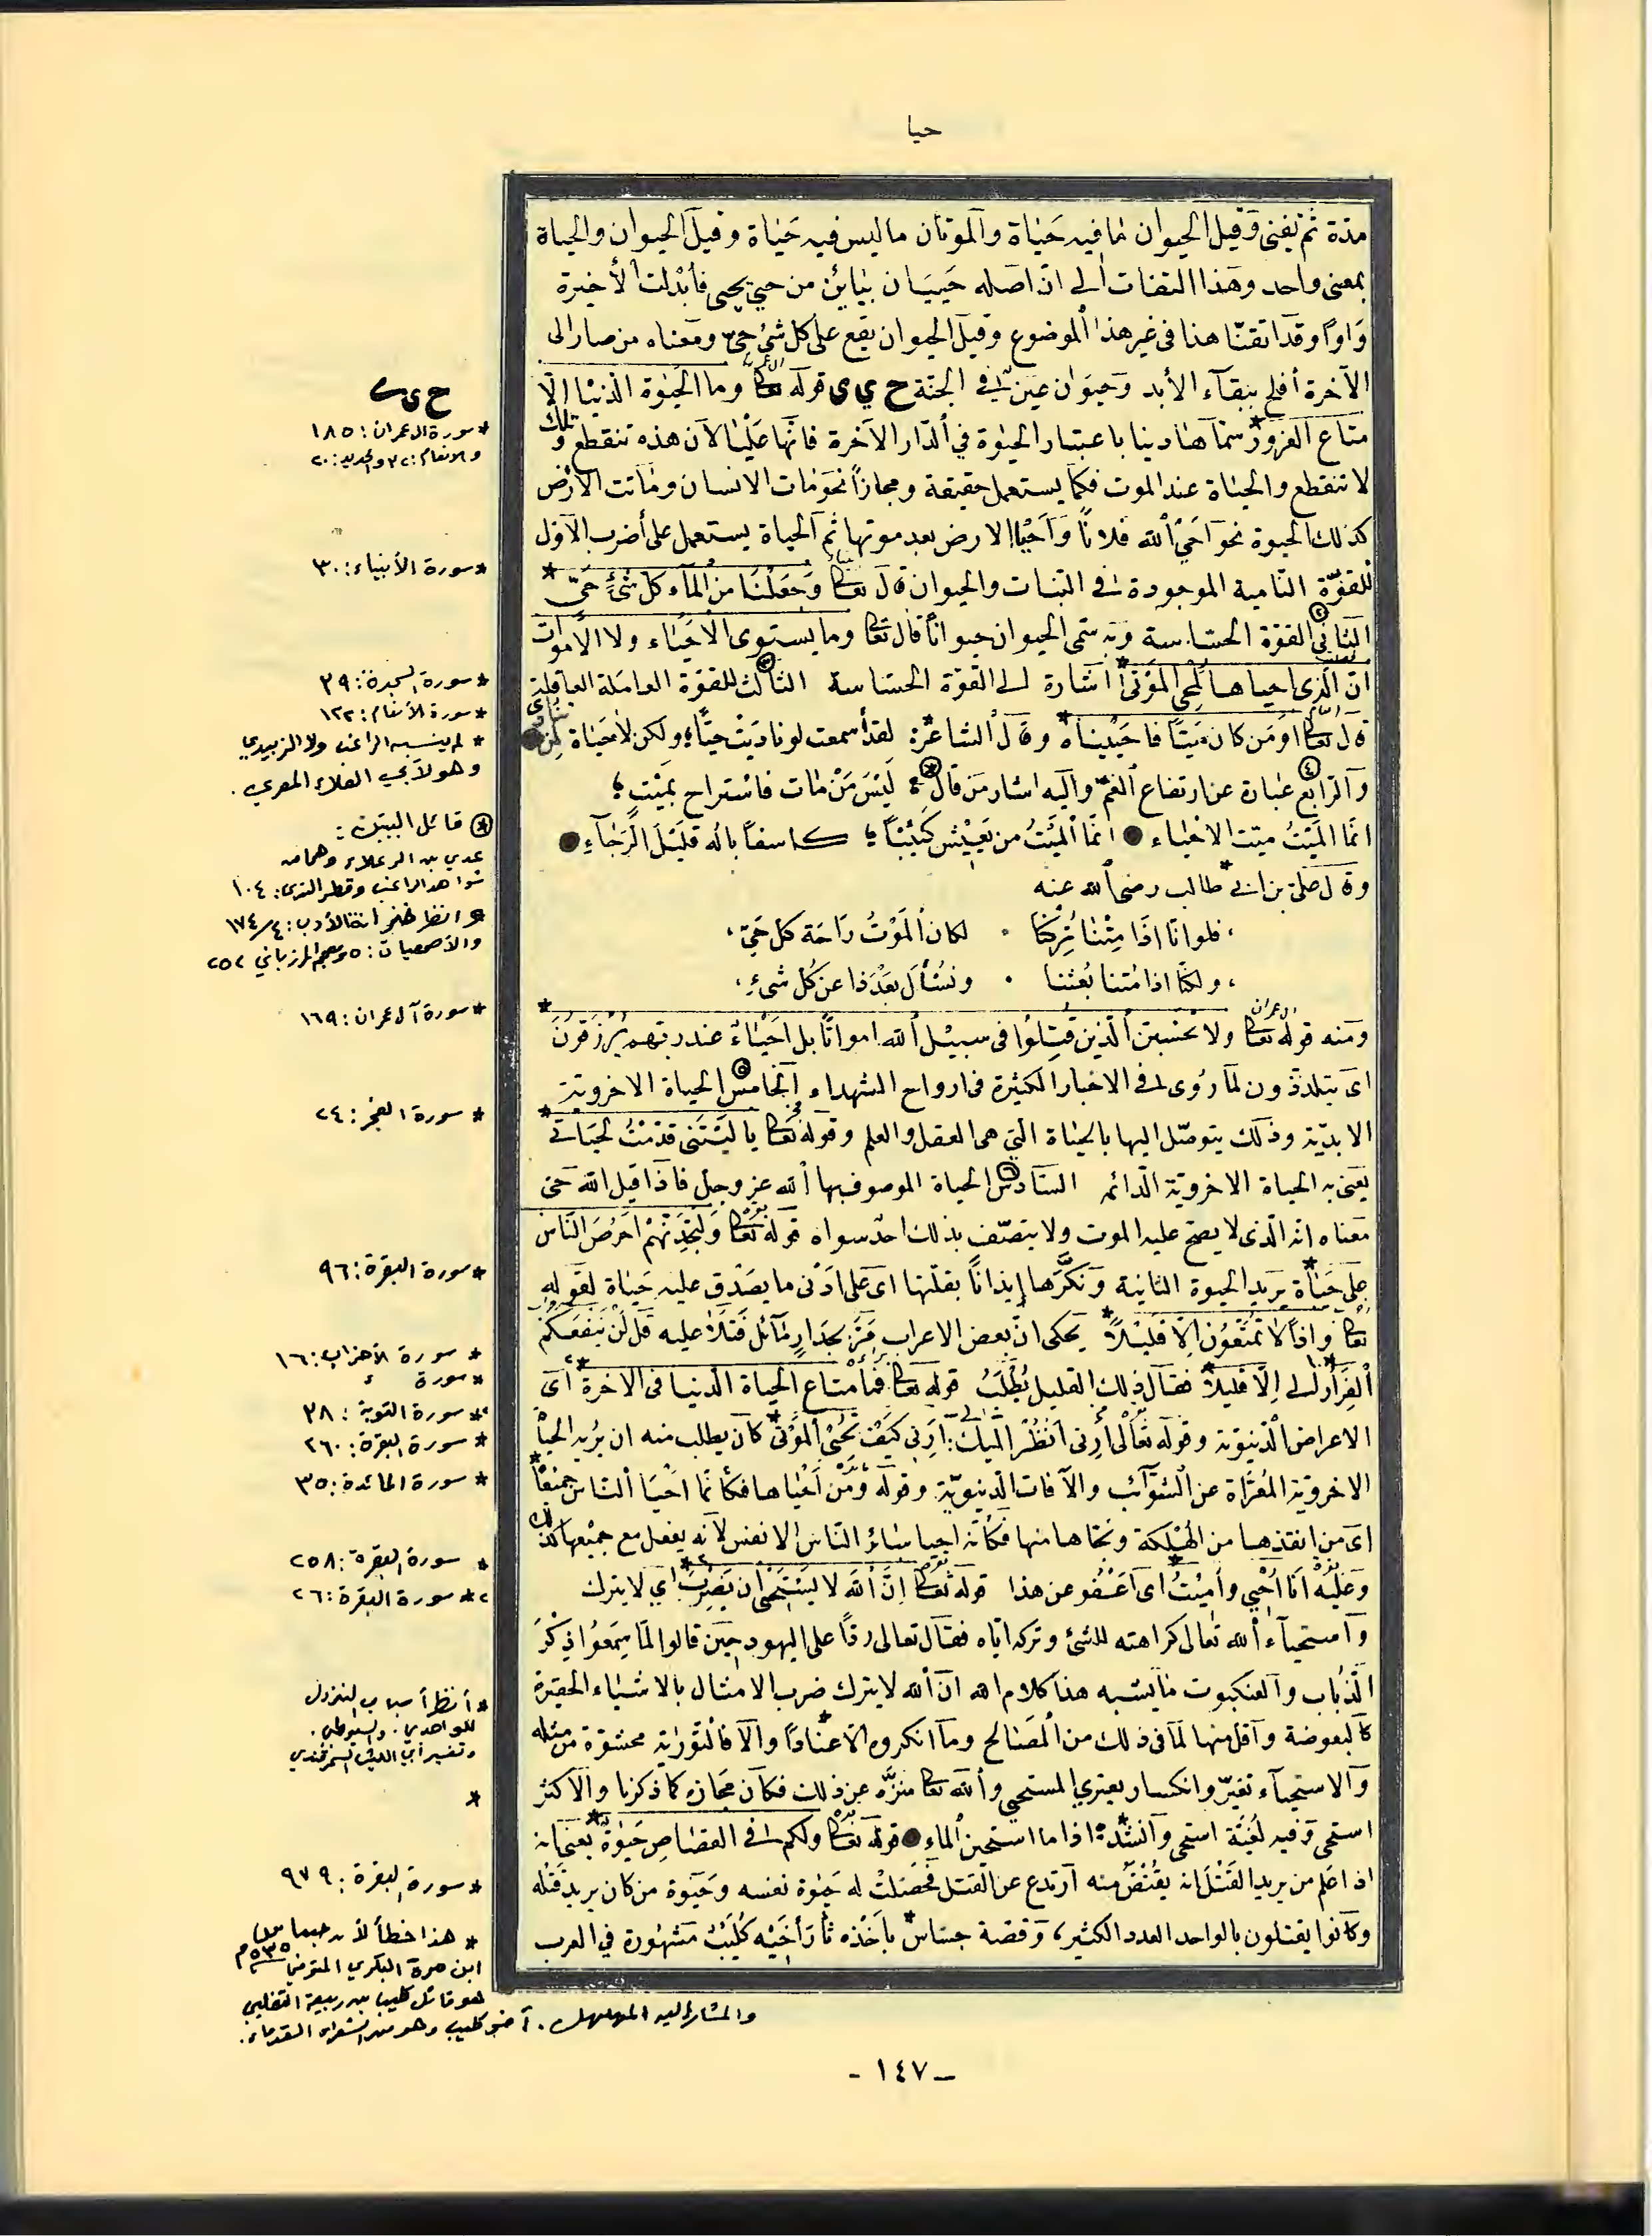 حيا
مدّة ثم تفنى وقيل الحيوان ما فيه حَيٰاة والموتان ما ليس فيه حَيٰاة وقيل الحيوان والحياة
بمعنى واحد وهذا التفات الى انّ اصله حَيَيَان بيٰايَيْن من حيي يحيى فأبدلت الأخيرة
وَاواً وقد اتقنّا هذا في غير هذا الموضوع وقيل الحيوان يقع على كل شئ حيّ ومعناه من صار الى
الآخرة أفلح ببقآء الأبد وحيوان عين في الجنة ح ي ي قوله تعا وما الحَيٰوة الدّنيٰا الّا
متاع الغرور سمّاها دنيا باعتبار الحيٰوة في الدّار الآخرة فانّها عَليٰا لأن هذه تنقطع وتلك
لا تنقطع والحيٰاة عند الموت فكما يستعمل حقيقة ومجازاً نحو مٰات الانسان ومٰاتت الارض
كذلك الحيوة نحو احَيَ الله فلاناً وَاَحَيْا الارض بعد موتها ثم الحياة يستعمل على أضرب الأوّل
للقوّة النّامية الموجودة في النّبات والحيوان قال تعا وَجَعَلْنَا من المآء كل شئٍ حَيّ *
الثاني القوّة الحسّاسة وبه سمّى الحيوان حيواناً قال تعا وما يستوى الأحْيٰاء ولا الأموات
انّ الّذي احياها لمحي المَوْتى * اشارة الى القوّة الحسّاسة الثالث للقوّة العاملة العاقلة
قال تعا اَوَمَن كان مَيتاً فاحيَيْناه * وقال الشاعر * لقد أسمعت لو ناديت حيّاً ولكن لا حَيٰاة لمن تنادى
والرابع عبارة عن ارتفاع الغمّ واليه اشار من قال لَيْسَ مَنْ مٰات فاسْتراح بمَيْتٍ
انّما المَيْتُ ميّت الاحيٰاء ● انّما الميَتُ من يَعيْش كَئيْبًا كاسفاً باله قليْلَ الرَّجٰآءِ ●
وقال علي بن ابي طالب رضي الله عنه
فلو انّا اذَا مِتْنا تُرِكنا ۰ لكان المَوْتُ رَاحَة كل حَيّ
ولكنّا اذا مُتنا بُعثنا ۰ ونُسْأل بَعْدَ ذا عن كُل شئٍ
ومنه قوله تعا ولا تحْسَبن الّذين قُتِلوُا في سبيْل الله امواتًا بل احَيْٰاءٌ عند ربّهم يُرْزَقوُنَ *
اى يتلذذون لما رُوى في الاخبار الكثيرة في ارواح الشهداء الخامس الحياة الاخرويّة
الابديّة وذلك يتوصّل اليها بالحيٰاة الّتي هي العقل والعلم وقوله تعا يا ليْتَني قدّمْتُ لحيَاتي *
يَعني به الحياة الاخرويّة الدائمه السّادس الحياة الموصوف بها الله عز وجل فاذا قيل الله حَيّ
معناه انه الّذى لا يصح عليه الموت ولا يتصّف بذلك احد سواه قوله تعا وَلتجَدَنّهمْ احرَصَ النّاس
على حَيٰاة * يريد الحيوة الثانية ونكّرها إيذاناً بقلّتها اى على اَدْنى ما يصَدْق عليه حَيٰاة لقوله
تعا واذاً لا تمَتّعُوُن الّا قليْلاً * يحكى انّ بعض الاعراب مَرّ بجدَارٍ مٰآئل فتلا عليه قل لَن ينفعكُم
الفِرار الى إلّا قليلاً * فقال ذلك القليل نُطلبُ قوله تعا فَمٰا متاع الحياة الدّنيا في الاخرة * اى
الاعراض الدّنيويّة وقوله تعالى أرِنى اَنظُر اليك : اَرِني كَيْفَ تُحْيِ المَوْتى * كان يطلب منه ان يُريه الحيٰاة
الاخرويّة المُعَرّاة عن الشوَآئب والآفات الدّنيويّة وقوله ومَنْ اَحْيٰاها فكأنّما احْيَا النّاس جميعًا *
اى من انقذها من الهَلكة ونجّاها منها فكأنّه احيا سٰائر النّاس الانفس لأنه يفعل مع جميْعها كذلك
وعَليْه اَنَا اُحْيي وأميْتُ * اى اَعَفُو عن هذا قوله تعا انّ الله لا يَسْتَحْيى ان يَضرِبَ * اي لا يترك
وامستحيآء الله تعالى كراهته للشئ وتركه ايّاه فقال تعالى ردًّا على اليهود حيْن قالوا لمّا سَمعُوا ذِكْرَ
الذّبٰاب والعنكبوت مٰا يشبه هذا كلام الله انّ الله لا يترك ضرب الامثال بالاشيٰاء الحقيرة
كالبعوضة واقل منها لما في ذلك من المصَالح وما انكروه الّا عنادًا * والّا فالتورٰية محشوّة من مثله
والاستحيآء تغيّر وانكسار يعتري المستحي والله تعا منزّه عن ذلك فكان مجَازه كما ذكرنا والاكثر
استحى وفيه لُغيّة استحى وانشد * اذا ما استحين الماء ● قوله تعا ولكم في القصٰاصِ حَيٰوة * يعني انه
اذا علم من يريد القَتْل انه يقُتَصّ منه ارتدع عن القتل فحَصَلتْ له حَيٰوة نفسه وحَيٰوة من كان يريد قَتله
وكانوا يقتلون بالواحد العدد الكثير، وقصة جسّاس * بأخْذه ثأر أخَيْه كُليْبْ مَشهُورة في العرب
ح ي ي
* سورة ال عمران : ١٨٥
والانعام : ٣٢ والحديد : ٢٠
* سورة الأنبياء : ٣٠
* سورة السجدة : ٣٩
* سورة الأنعام : ١٢٢
* لم ينسبه الراغب ولا الزبيدي
وهو لأبي العلاء المعري .
* قائل البيتين :
عدي بن الرعلاء وهما من
شواهد الراغب وقطر الندى : ١٠٤
* وانظر خزانة الأدب : ٤/١٧٤
والأصمعيات : ٥ ومعجم المرزباني ٢٥٢
* سورة آل عمران : ١٦٩
* سورة الفجر : ٢٤
* سورة البقرة : ٩٦
* سورة الأحزاب : ١٦
* سورة
* سورة التوبة : ٣٨
* سورة البقرة : ٢٦٠
* سورة المائدة : ٣٥
* سورة البقرة : ٢٥٨
* سورة البقرة : ٢٦
* أنظر أسباب النزول
للواحدي . والسيوطي .
وتفسير أبي الليث السمرقندي
*
* سورة البقرة : ٩٧٩
* هذا خطأ لأن جساس
ابن مرة البكري المتوفى ٥٣٥ م
هو قاتل كليب بن ربيعة التغلبي
والمشار إليه المهلهل . أخو كليب وهو من الشعراء القدماء .
- ١٤٧ -